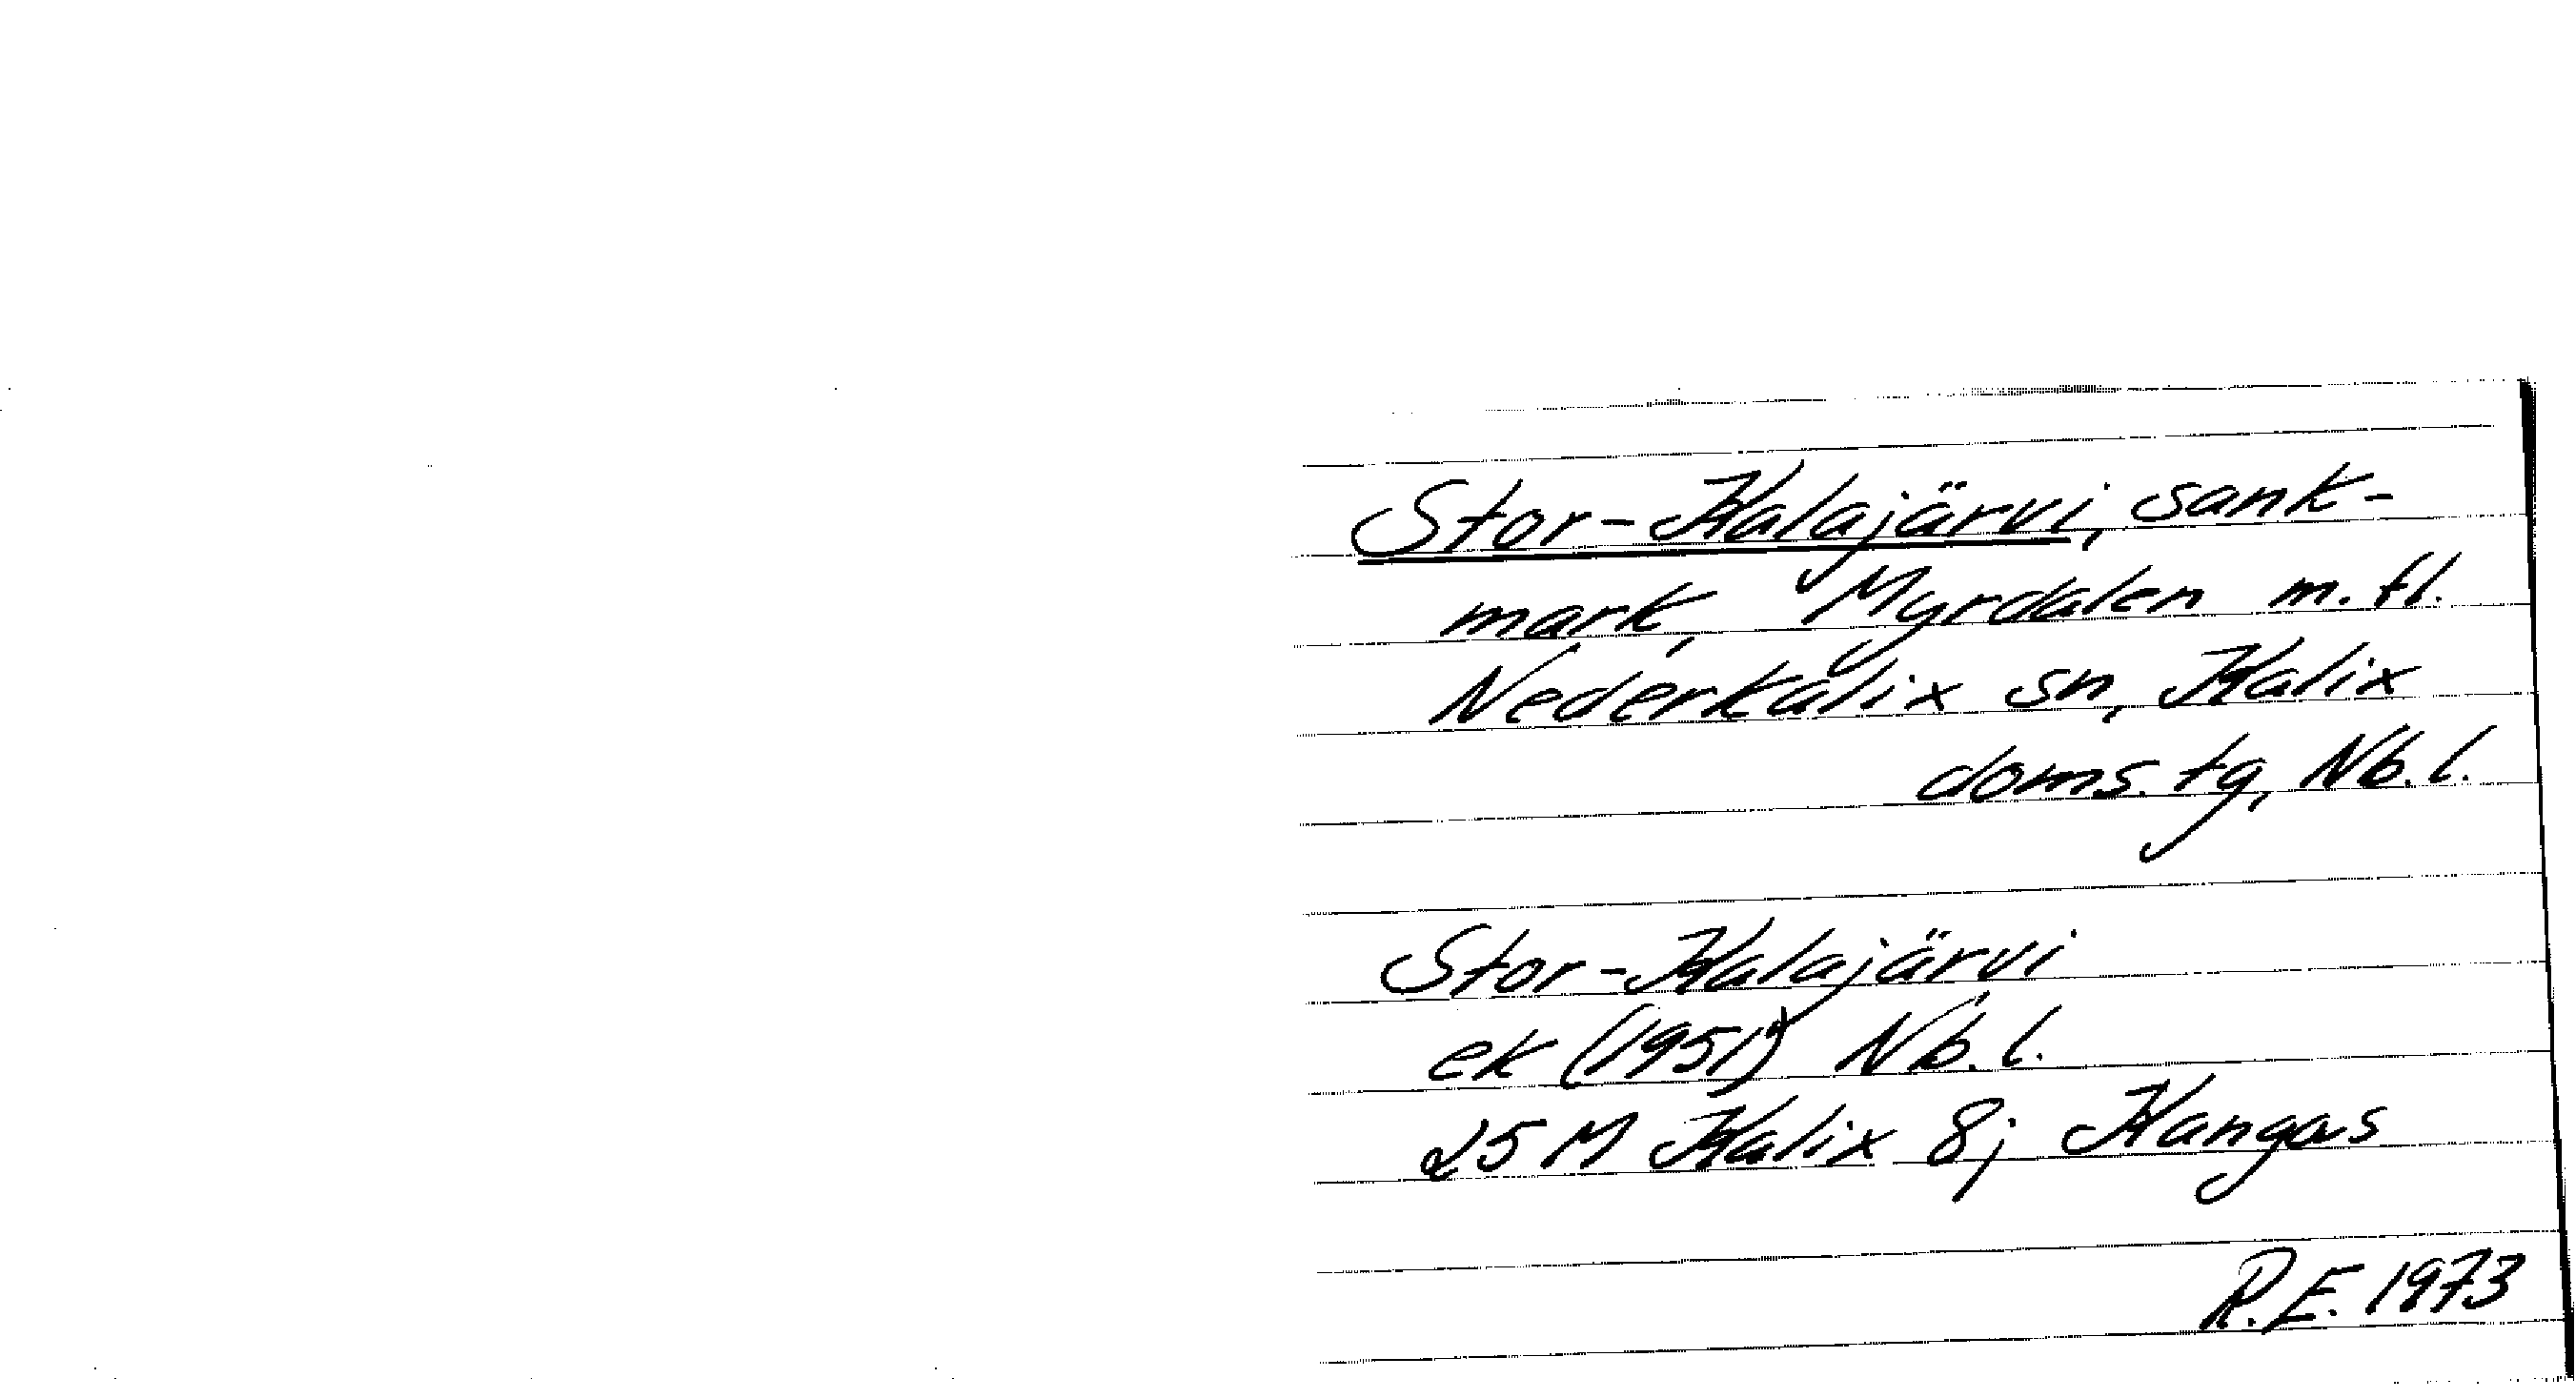 Stor-Kalajärvi, sank-
mark, Myrdalen m.fl.
Nederkalix sn, Kalix
doms.tg, Nb.l.
Stor-Kalajärvi
ek (1951) Nb.l.
25 M Kalix 8j Kangas
R.E. 1973